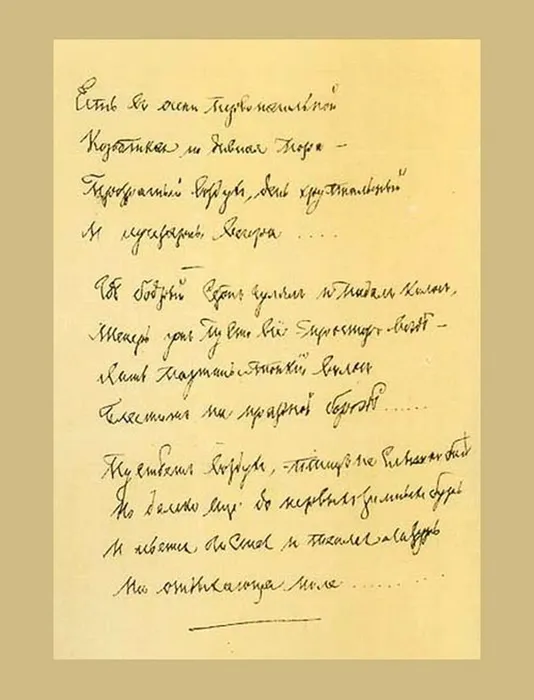 Есть в осени первоначальной
Короткая но дивная пора —
Прозрачный воздух, день хрустальный
И лучезарны вечера ....
Где бодрый Серп гулял и падал колос,
Теперь уж пусто всё — простор везде —
Лишь паутины тонкий волос
Блестит на праздной борозде ......
Пустеет воздух, птиц не слышно боле
Но далеко еще до первых зимних бурь
И льется чистая и теплая лазурь
На отдыхающее поле ..........